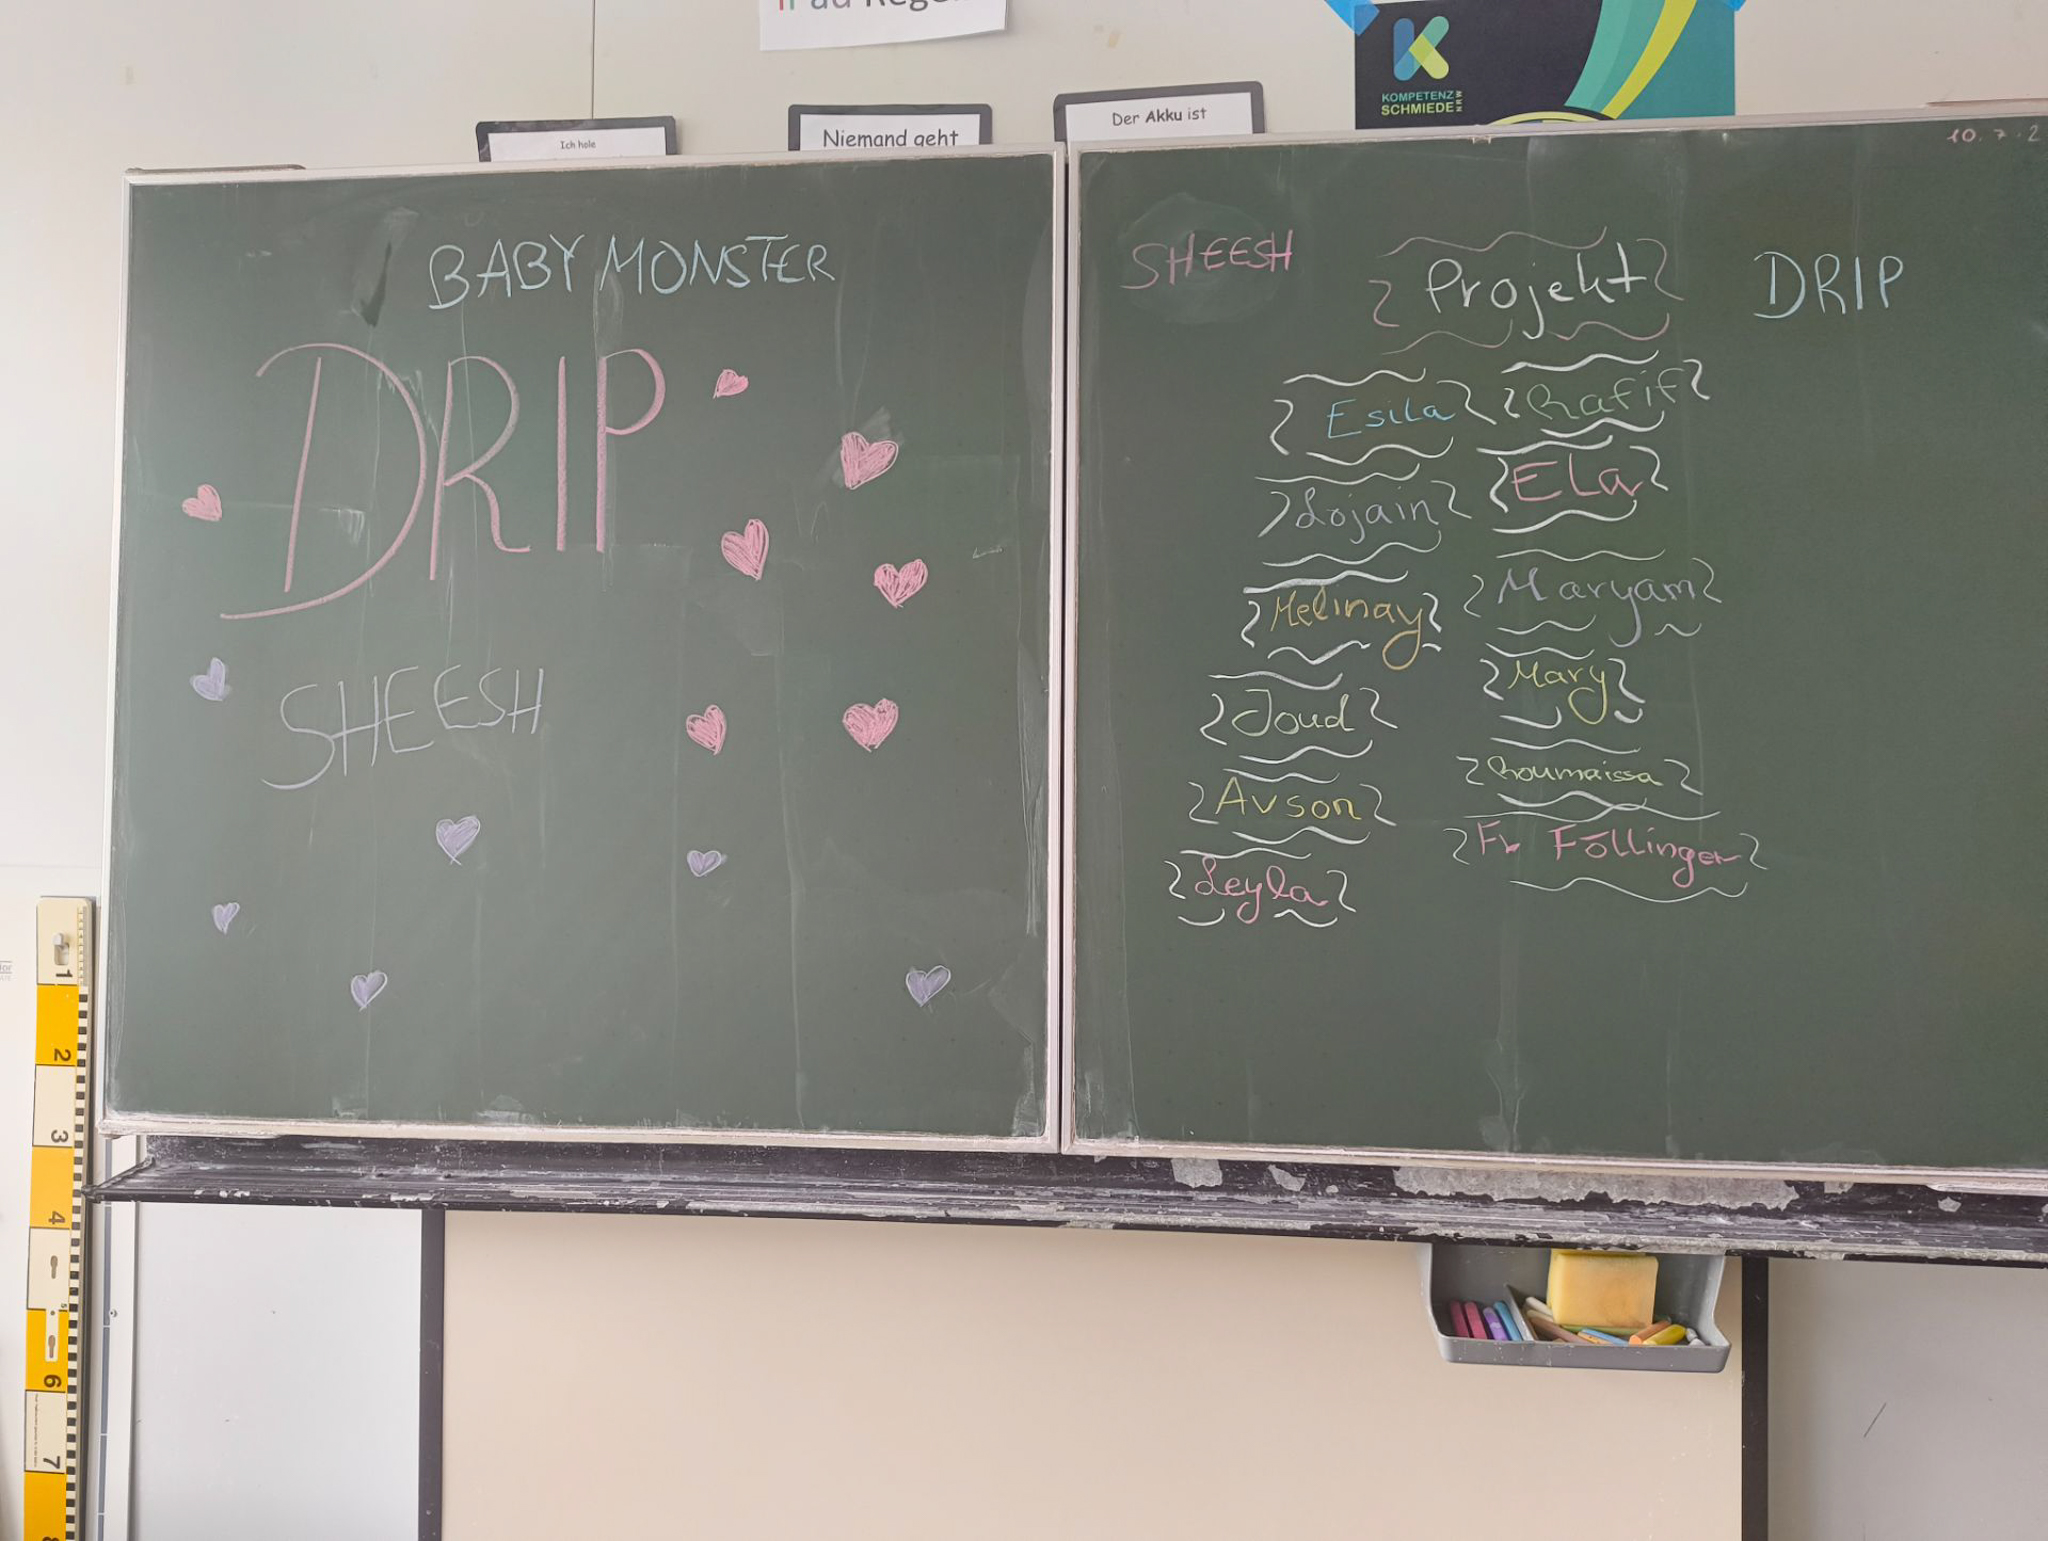 KOMPETENZ
SCHMIEDE NRW
Ich hole
Niemand geht
Der Akku ist
10.7.2
BABYMONSTER
DRIP
SHEESH
SHEESH
Projekt
DRIP
Esila
Rafif
Lojain
Ela
Melinay
Maryam
Joud
Mary
Avson
Roumaissa
Leyla
Fr Föllinger
1
2
3
4
5
6
7